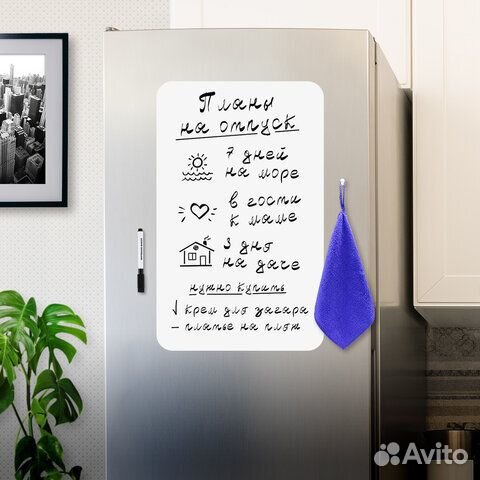 Планы
на отпуск
7 дней
на море
в гости
к маме
3 дно
на даче
нужно купить
√ крем для загара
– платье на пляж
Avito